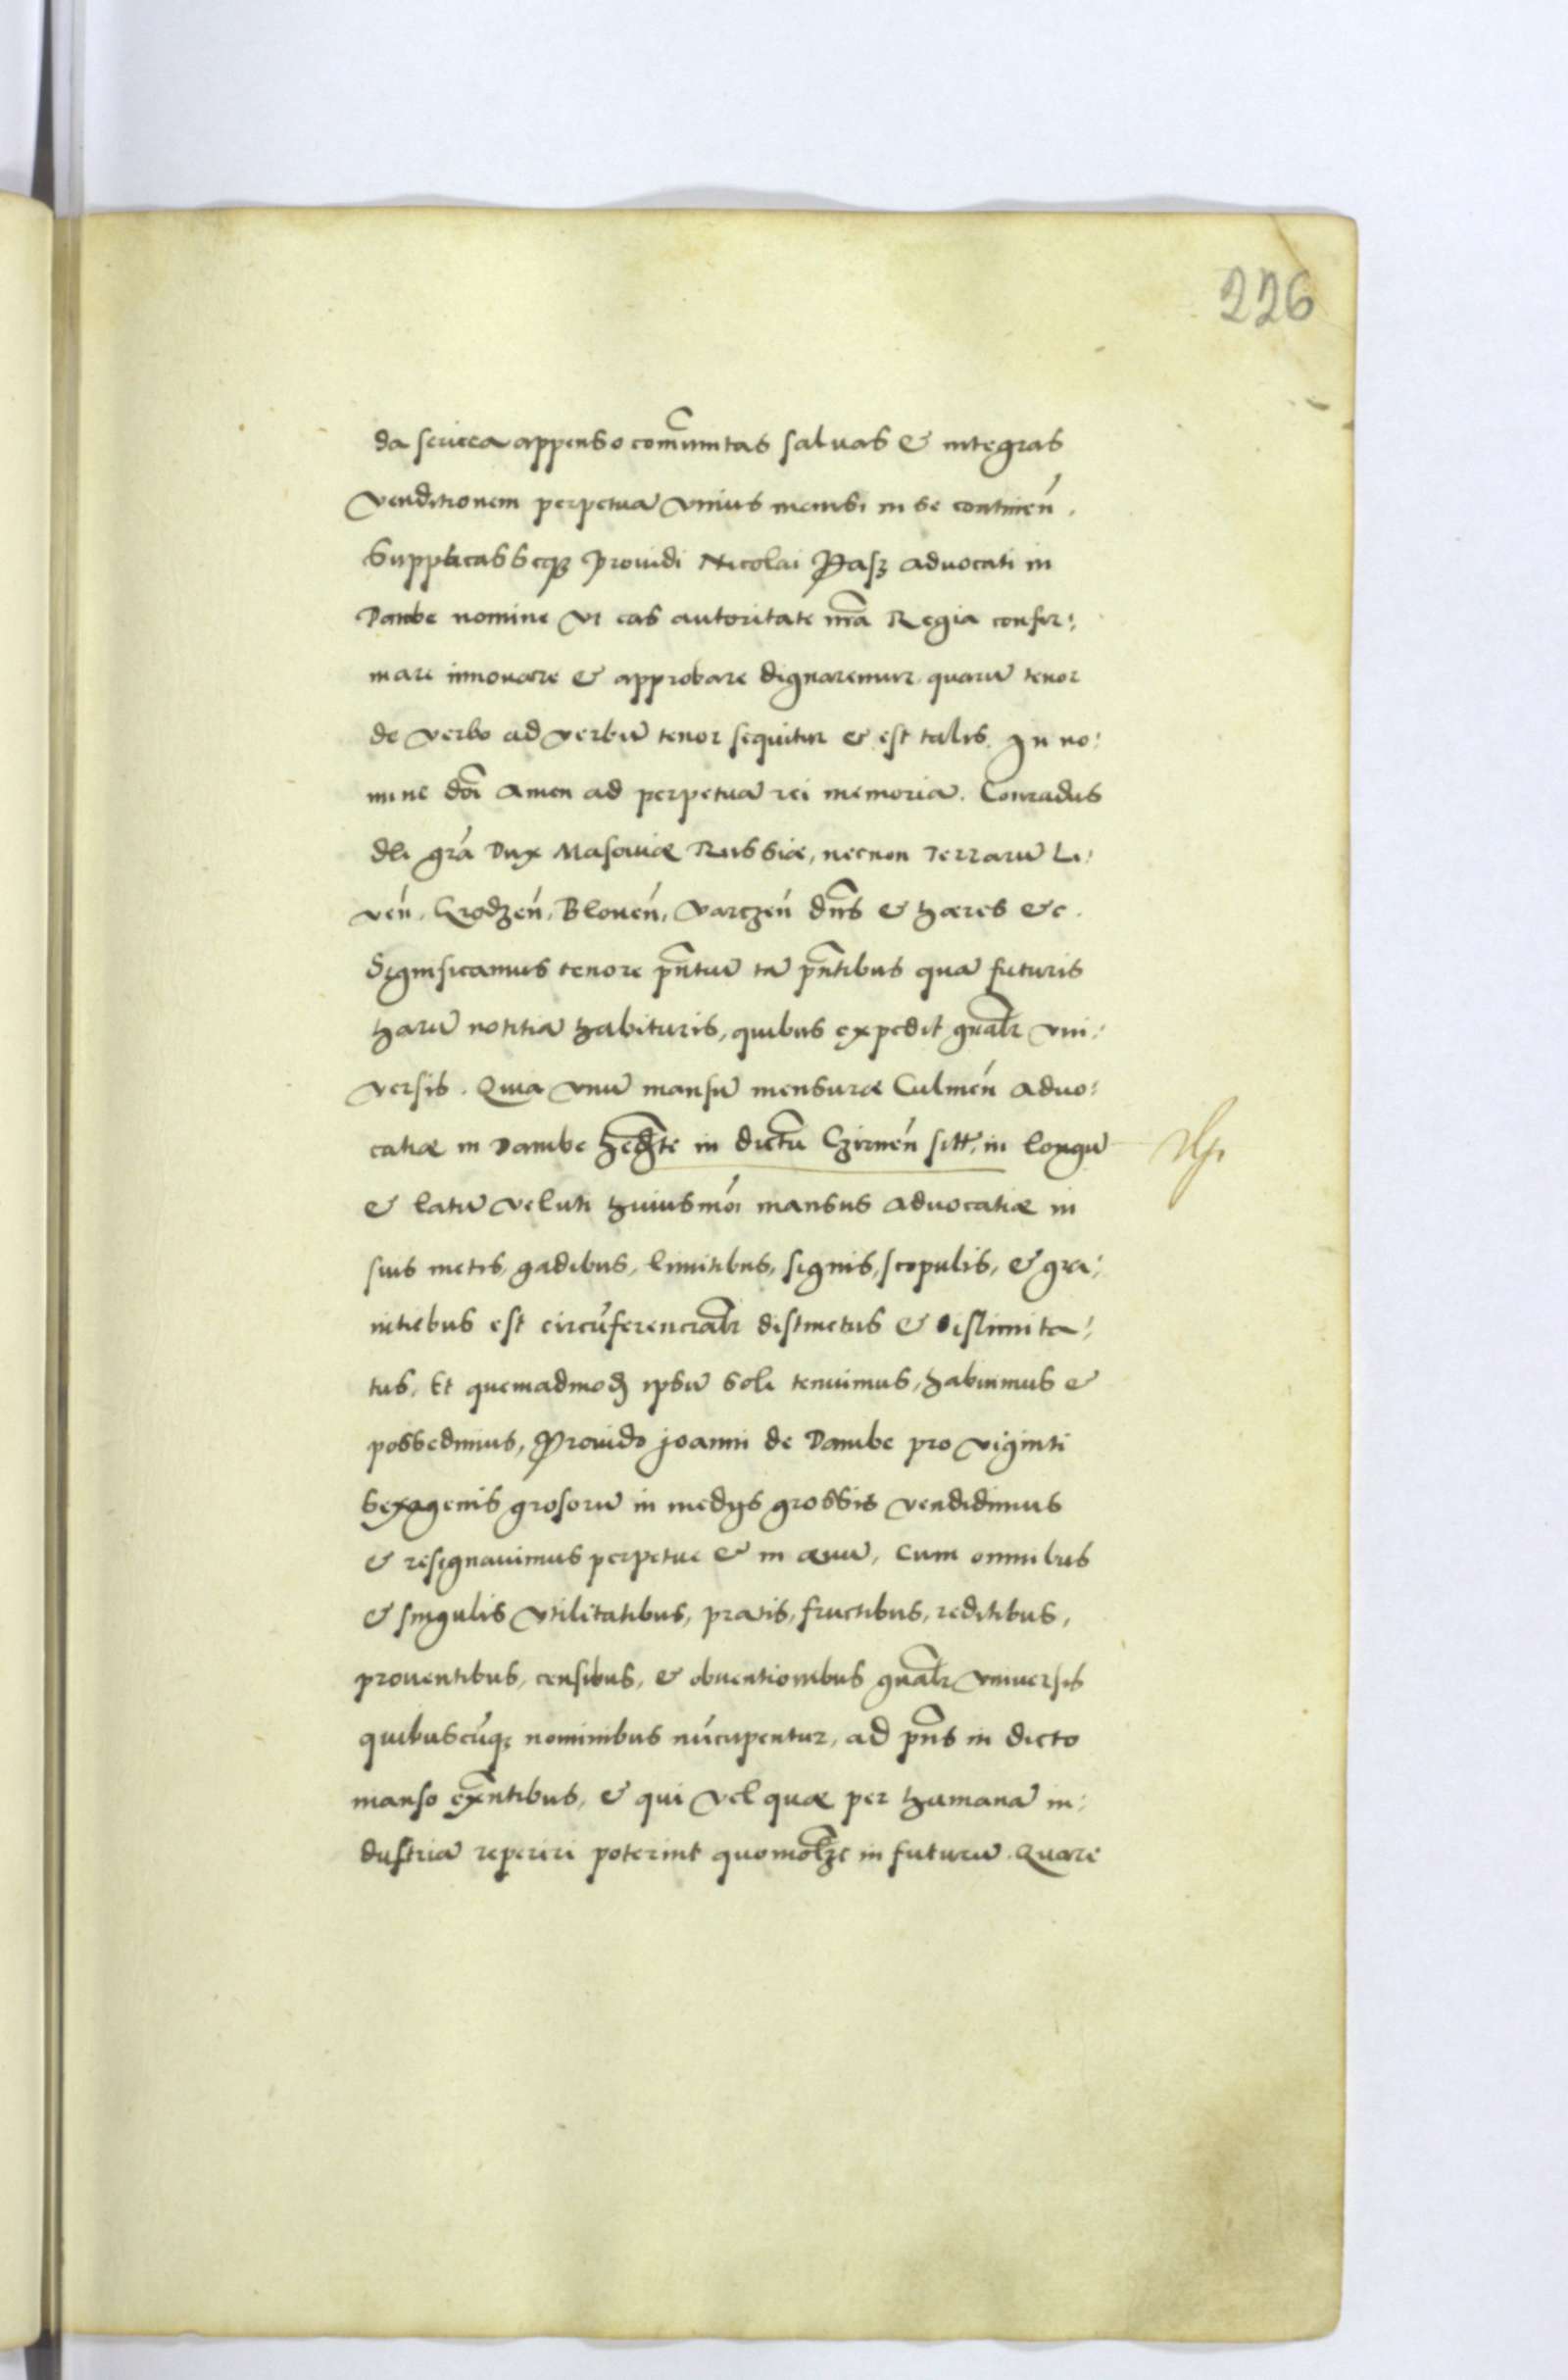 226
da sericea appenso com̃unitas salvas & integras
venditionem perpetuã vnius mansi in se continen̄.
Supplicasseq₃ Providi Nicolai Pasz advocati in
Dambe nomine vt eas autoritate n̄rã Regia confir:
mare innovare & approbare dignaremur quarũ tenor
de verbo ad verbũ tenor sequitur & est talis. In no:
mine dñi Amen ad perpetuã rei memoriã. Conradus
dei grã Dux Masoviæ Russiæ, necnon Terrarũ Li:
ven̄, Grodzen̄, Blonen̄, Varczen̄ dn̄s & hæres &c.
Significamus tenore pn̄tiũ tã pn̄tibus quã futuris
harũ notitiã habituris, quibus expedit gn̄alr vni:
versis. Quia vnũ mansũ mensuræ Culmen̄ advo:
catiæ in Dambe in dictũ Czirnen̄ sitt. in longũ
& latũ veluti huiusmoi mansus advocatiæ in
suis metis, gadibus, limitibus, signis, scopulis, & gra:
nitiebus est circũferencialr distinctus & dislimita:
tus, Et quemadmodũ ipsũ soli tenuimus, habuimus &
possedimus, Provido Joanni de Dambe pro viginti
sexagenis grosorũ in medijs grossis vendidimus
& resignavimus perpetue & in ævũ, cum omnibus
& singulis vtilitatibus, pratis, fructibus, reditibus,
proventibus, censibus, & obventionibus gn̄alr vniversis
quibuscũq₃ nominibus nũcupentur, ad pn̄s in dicto
manso exn̄tibus, & qui vel quæ per humanã in:
dustriã reperiri poterint quomolzt in futurũ. Quare